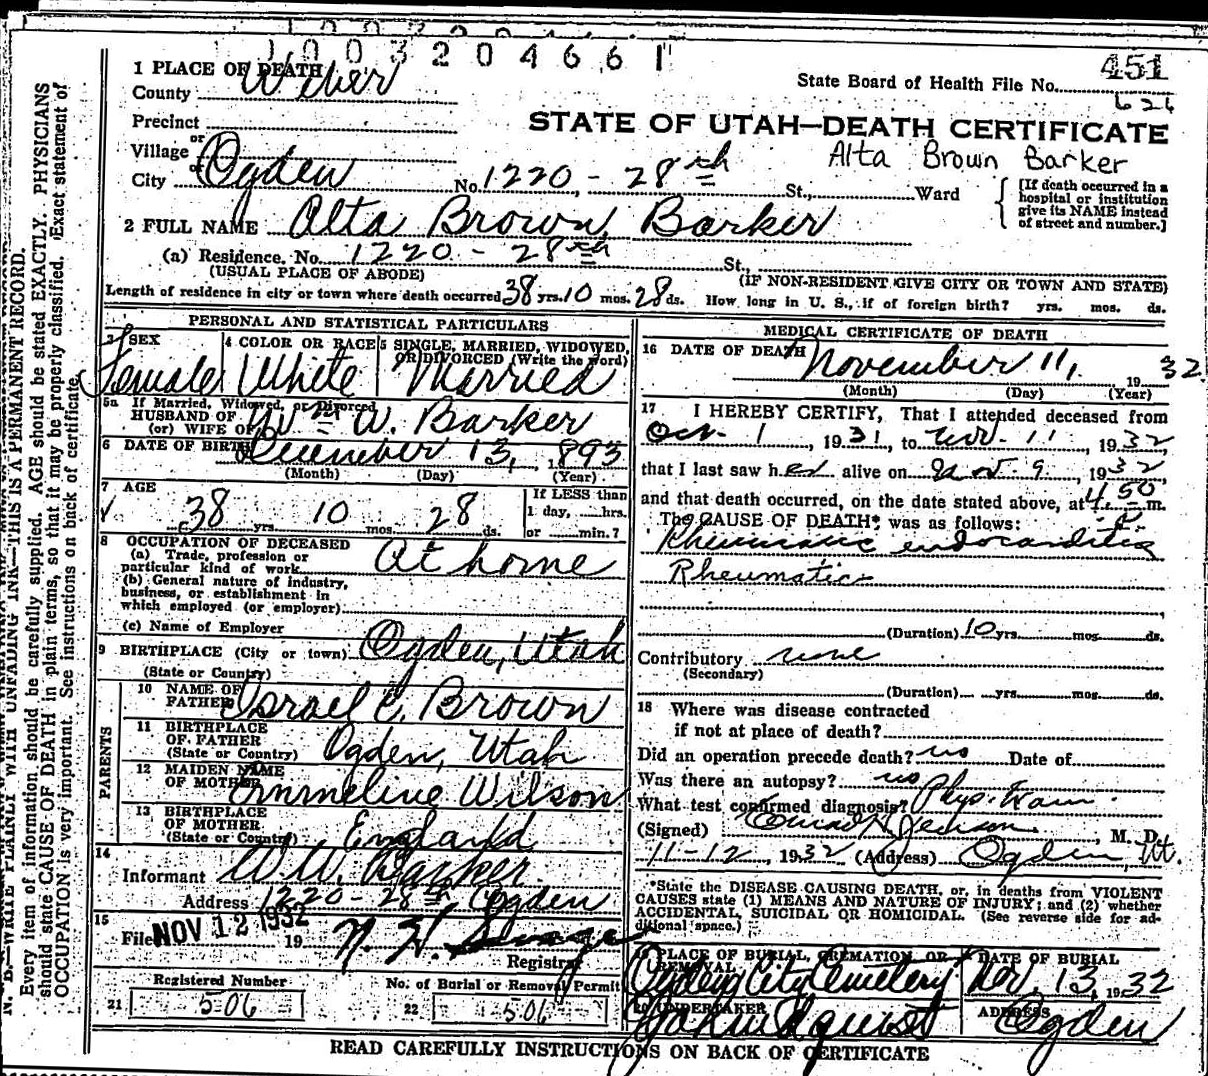 1003204661
451
626
1 PLACE OF DEATH
County Weber
State Board of Health File No.
Precinct
STATE OF UTAH—DEATH CERTIFICATE
or
Village
or
Alta Brown Barker
City Ogden No. 1220 - 28th St., Ward
[If death occurred in a hospital or institution give its NAME instead of street and number.]
2 FULL NAME Alta Brown Barker
(a) Residence. No. 1220 - 28th St.
(USUAL PLACE OF ABODE) (IF NON-RESIDENT GIVE CITY OR TOWN AND STATE)
Length of residence in city or town where death occurred 38 yrs. 10 mos. 28 ds. How long in U. S., if of foreign birth? yrs. mos. ds.
PERSONAL AND STATISTICAL PARTICULARS
3 SEX Female
4 COLOR OR RACE White
5 SINGLE, MARRIED, WIDOWED, OR DIVORCED (Write the word) Married
5a If Married, Widowed, or Divorced
HUSBAND OF
(or) WIFE OF Wm W. Barker
6 DATE OF BIRTH December 13, 1893
(Month) (Day) (Year)
7 AGE
38 yrs. 10 mos. 28 ds.
If LESS than
1 day, hrs.
or min.?
8 OCCUPATION OF DECEASED
(a) Trade, profession or
particular kind of work At home
(b) General nature of industry,
business, or establishment in
which employed (or employer)
(c) Name of Employer
9 BIRTHPLACE (City or town) Ogden, Utah
(State or Country)
PARENTS
10 NAME OF
FATHER Israel C. Brown
11 BIRTHPLACE
OF FATHER
(State or Country) Ogden, Utah
12 MAIDEN NAME
OF MOTHER Emmeline Wilson
13 BIRTHPLACE
OF MOTHER
(State or Country) England
14
Informant W. W. Barker
Address 1220 - 28th Ogden
15
Filed NOV 12 1932 19
Registrar
Registered Number
21 506
No. of Burial or Removal Permit
22 506
MEDICAL CERTIFICATE OF DEATH
16 DATE OF DEATH November 11, 1932
(Month) (Day) (Year)
17 I HEREBY CERTIFY, That I attended deceased from
Oct. 1, 1931, to Nov. 11, 1932,
that I last saw her alive on Nov. 9, 1932
and that death occurred, on the date stated above, at 4.50 P. m.
The CAUSE OF DEATH* was as follows:
Rheumatic endocarditis
Rheumatic
(Duration) 10 yrs. mos. ds.
Contributory none
(Secondary)
(Duration) yrs. mos. ds.
18 Where was disease contracted
if not at place of death?
Did an operation precede death? no Date of
Was there an autopsy? no
What test confirmed diagnosis? Phys. Exam.
(Signed) Jenson, M. D.
11-12, 1932 (Address) Ogden, Ut.
*State the DISEASE CAUSING DEATH, or, in deaths from VIOLENT
CAUSES state (1) MEANS AND NATURE OF INJURY; and (2) whether
ACCIDENTAL, SUICIDAL OR HOMICIDAL. (See reverse side for ad-
ditional space.)
PLACE OF BURIAL, CREMATION, OR
REMOVAL
Ogden City Cemetery
DATE OF BURIAL
Nov. 13, 1932
UNDERTAKER
ADDRESS
Ogden
READ CAREFULLY INSTRUCTIONS ON BACK OF CERTIFICATE
N. B.—WRITE PLAINLY WITH UNFADING INK—THIS IS A PERMANENT RECORD.
Every item of information should be carefully supplied. AGE should be stated EXACTLY. PHYSICIANS
should state CAUSE OF DEATH in plain terms, so that it may be properly classified. Exact statement of
OCCUPATION is very important. See instructions on back of certificate.